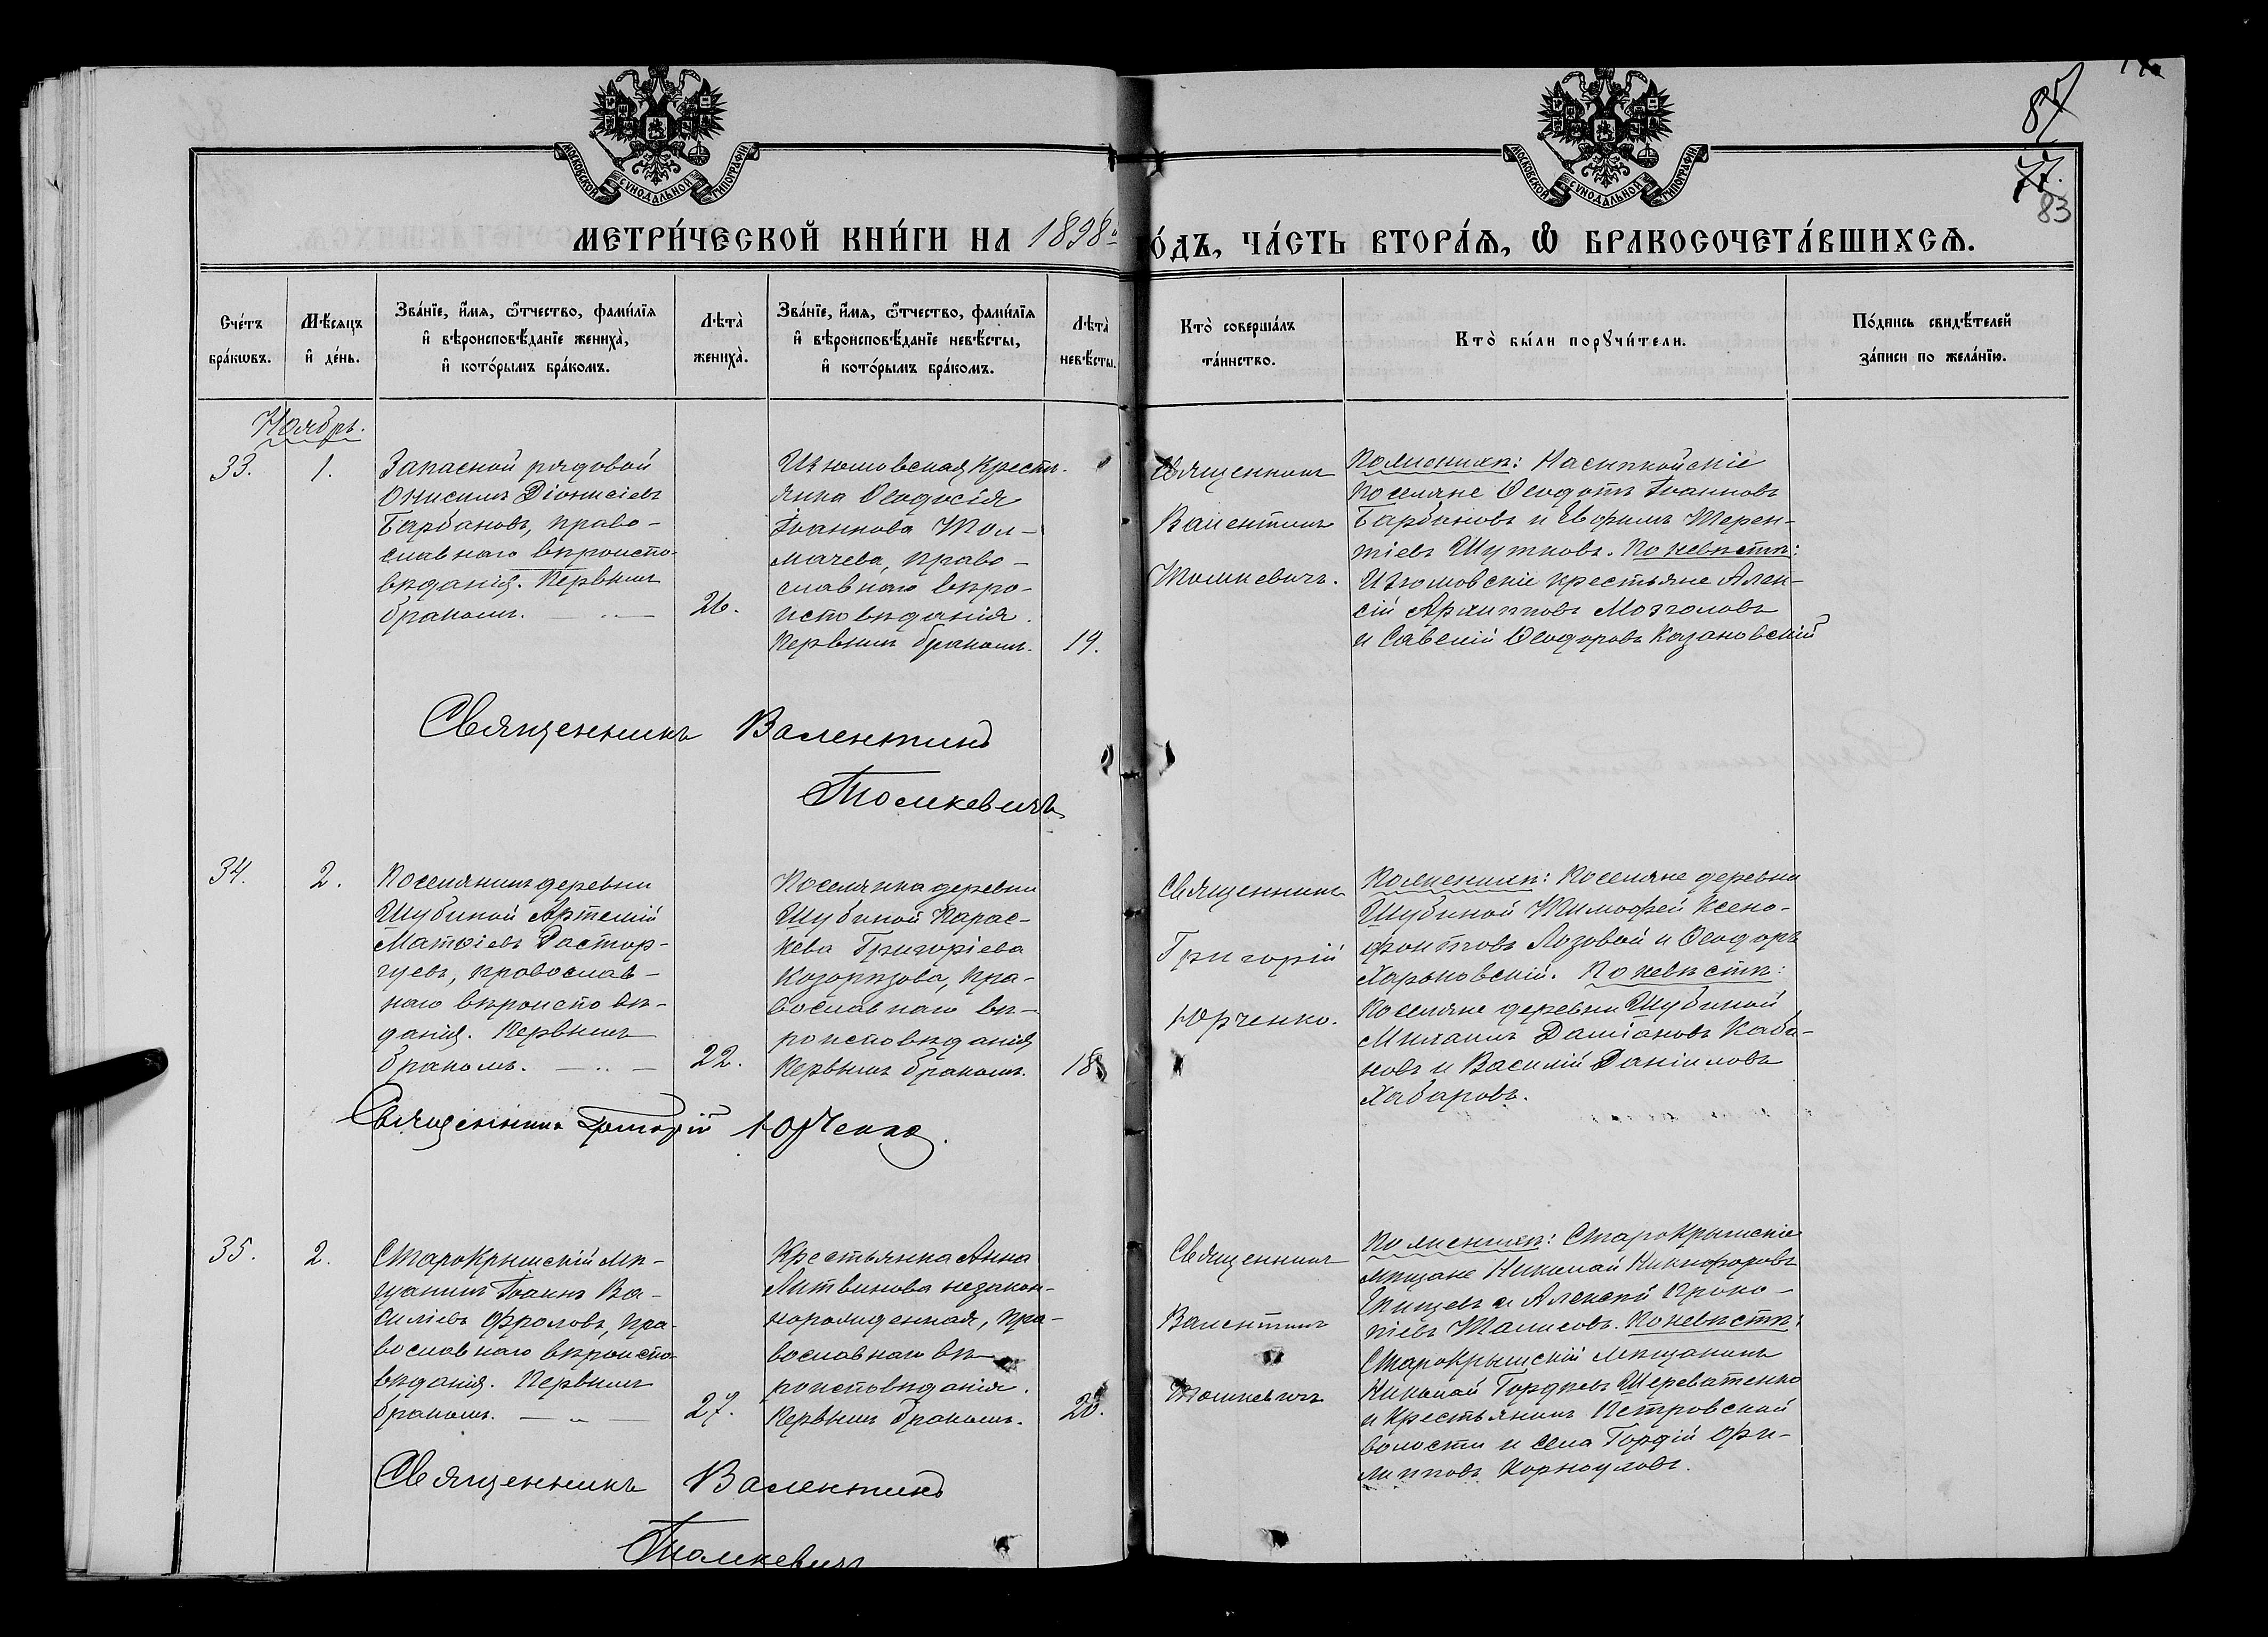 МОСКОВСКОЙ СѴНОДАЛЬНОЙ ТИПОГРАФІИ
МОСКОВСКОЙ СѴНОДАЛЬНОЙ ТИПОГРАФІИ
87
77.
83
МЕТРИ́ЧЕСКОЙ КНИ́ГИ НА 1898 го́дъ, ЧА́СТЬ ВТОРА́Ѧ, Ѡ҆ БРАКОСОЧЕТА́ВШИХСѦ.
Сче́тъ
бра́кѡвъ.
Мѣ́сѧцъ
и҆ де́нь.
Зва́нїе, и҆́мѧ, ѻ҆́тчество, фами́лїѧ
и҆ вѣроисповѣ́данїе жениха̀,
и҆ кото́рымъ бра́комъ.
Лѣта̀
жениха̀.
Зва́нїе, и҆́мѧ, ѻ҆́тчество, фами́лїѧ
и҆ вѣроисповѣ́данїе невѣ́сты,
и҆ кото́рымъ бра́комъ.
Лѣта̀
невѣ́сты.
Кто̀ соверша́лъ
та́инство.
Кто̀ бы́ли порꙋчи́тели.
По́дпись свидѣ́телей
за́писи по жела́нїю.
Ноябрь.
33.
1.
Запасной рядовой
Онисимъ Діонисіевъ
Барбановъ, право-
славнаго вѣроиспо-
вѣданія. Первымъ
бракомъ.
26.
Изюмовская крестья-
янка Ѳеодосія
Іоаннова Тол-
мачева, право-
славнаго вѣро-
исповѣданія.
Первымъ бракомъ.
19.
Священникъ
Валентинъ
Томкевичъ.
По женихѣ: Насыпкойскіе
поселяне Ѳеодотъ Іоанновъ
Барбановъ и Евфимъ Терен-
тіевъ Шутковъ. По невѣстѣ:
Изюмовскіе крестьяне Алек-
сій Архипповъ Мозголовъ
и Савелій Ѳеодоровъ Казановскій
Священникъ Валентинъ
Томкевичъ
34.
2.
Поселянинъ деревни
Шубиной Артемій
Матѳіевъ Растор-
гуевъ, православ-
наго вѣроисповѣ-
данія. Первымъ
бракомъ.
22.
Поселянка деревни
Шубиной Парас-
кева Григоріева
Козорѣзова, пра-
вославнаго вѣ-
роисповѣданія
Первымъ бракомъ.
18
Священникъ
Григорій
Юрченко.
По женихѣ: Поселяне деревни
Шубиной Тимофей Ксено-
фонтовъ Лозовой и Ѳеодоръ
Харьковскій. По невѣстѣ:
Поселяне деревни Шубиной
Михаилъ Даміановъ Каба-
новъ и Василій Даніиловъ
Хабаровъ.
Священникъ Григорій Юрченко.
35.
2.
Старокрымскій мѣ-
щанинъ Іоаннъ Ва-
силіевъ Фроловъ, пра-
вославнаго вѣроиспо-
вѣданія. Первымъ
бракомъ.
27.
Крестьянка Анна
Литвинова незакон-
норожденная, пра-
вославнаго вѣ-
роисповѣданія.
Первымъ бракомъ.
20.
Священникъ
Валентинъ
Томкевичъ
По женихѣ: Старокрымскіе
мѣщане Николай Никифоровъ
Епищевъ и Алексѣй Проко-
піевъ Талисовъ. По невѣстѣ:
Старокрымскій мѣщанинъ
Николай Гордѣевъ Шереватенко
и крестьянинъ Петровской
волости и села Гордій Фи-
липповъ Корноуловъ.
Священникъ Валентинъ
Томкевичъ